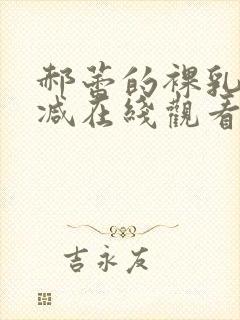 郝蕾的裸乳
减在綫觀看
吉永友